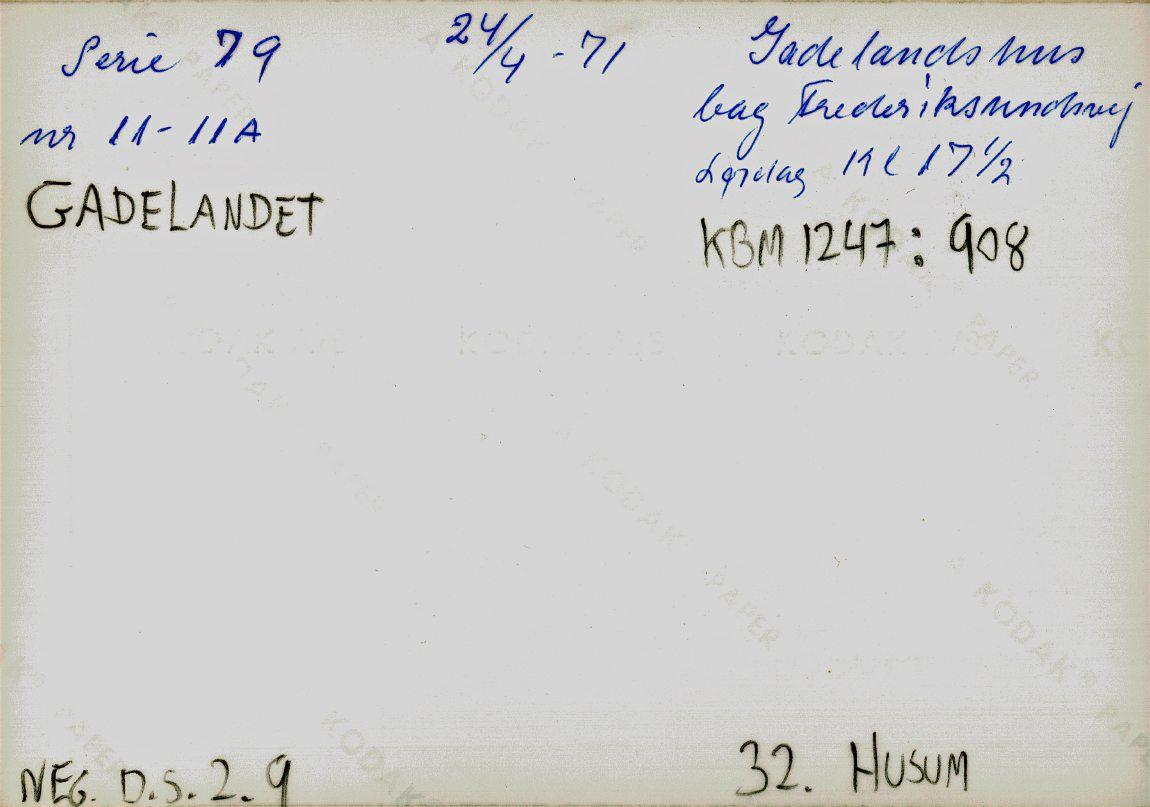 Serie 79
24/4 - 71
Gadelandshus
bag Frederikssundsvej
Lørdag Kl 17 1/2
nr 11-11A
GADELANDET
KBM 1247: 908
NEG. D.S. 2. 9
32. HUSUM